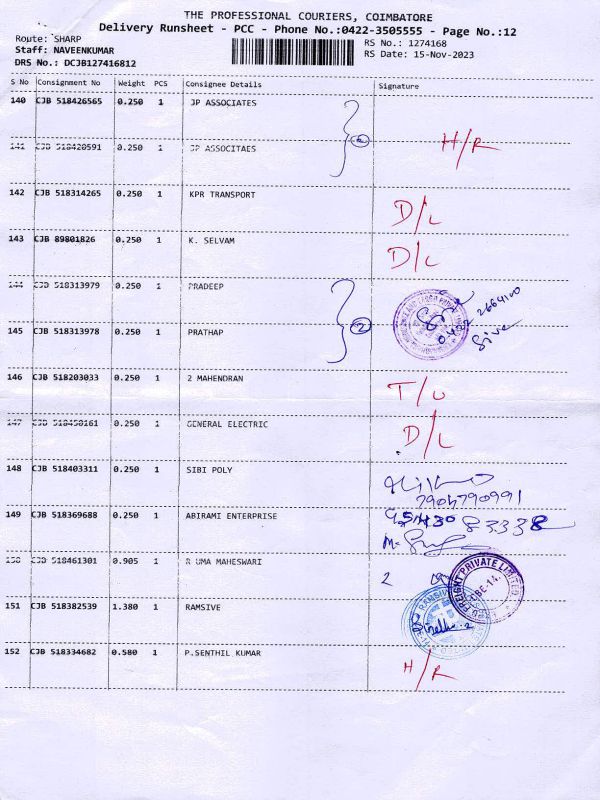 THE PROFESSIONAL COURIERS, COIMBATORE
Delivery Runsheet - PCC - Phone No.:0422-3505555 - Page No.:12
Route: SHARP
Staff: NAVEENKUMAR
DRS No.: DCJB127416812
RS No.: 1274168
RS Date: 15-Nov-2023
S No Consignment No Weight PCS Consignee Details Signature
140 CJB 518426565 0.250 1 JP ASSOCIATES
141 CJB 518420591 0.250 1 JP ASSOCITAES
H/R
142 CJB 518314265 0.250 1 KPR TRANSPORT
D/L
143 CJB 89801826 0.250 1 K. SELVAM
D/L
144 CJB 518313979 0.250 1 PRADEEP
2
0422 2664100
Siva
145 CJB 518313978 0.250 1 PRATHAP
146 CJB 518203033 0.250 1 2 MAHENDRAN
T/U
147 CJB 0.250 1 GENERAL ELECTRIC
D/L
148 CJB 518403311 0.250 1 SIBI POLY
7904790991
149 CJB 518369688 0.250 1 ABIRAMI ENTERPRISE
83338
150 CJB 518461301 0.905 1 R UMA MAHESWARI
2
FREIGHT PRIVATE LIMITED
151 CJB 518382539 1.380 1 RAMSIVE
152 CJB 518334682 0.580 1 P.SENTHIL KUMAR
H/R